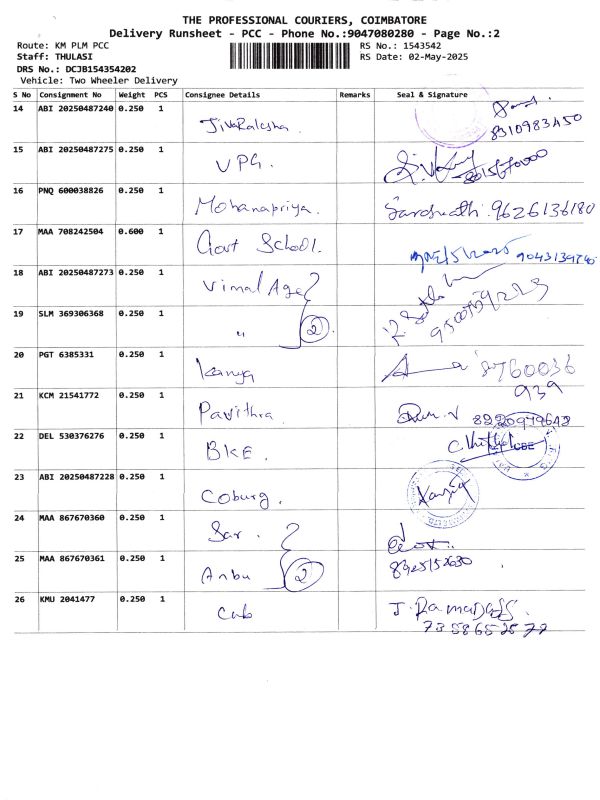 THE PROFESSIONAL COURIERS, COIMBATORE
Delivery Runsheet - PCC - Phone No.:9047080280 - Page No.:2
Route: KM PLM PCC
RS No.: 1543542
Staff: THULASI
RS Date: 02-May-2025
DRS No.: DCJB154354202
Vehicle: Two Wheeler Delivery
S No Consignment No Weight PCS Consignee Details Remarks Seal & Signature
14 ABI 20250487240 0.250 1
JivaRaksha.
8310983450
15 ABI 20250487275 0.250 1
VPG.
16 PNQ 600038826 0.250 1
Mohanapriya. 9626136180
17 MAA 708242504 0.600 1
Govt School.
18 ABI 20250487273 0.250 1
Vimal Age
19 SLM 369306368 0.250 1
" 2
20 PGT 6385331 0.250 1
Kanya 8760036
939
21 KCM 21541772 0.250 1
Pavithra 8220979642
22 DEL 530376276 0.250 1
BKE.
23 ABI 20250487228 0.250 1
Coburg.
24 MAA 867670360 0.250 1
Sar.
25 MAA 867670361 0.250 1
Anbu 2
8925152630
26 KMU 2041477 0.250 1
Cub J. Ramadass.
7358652577